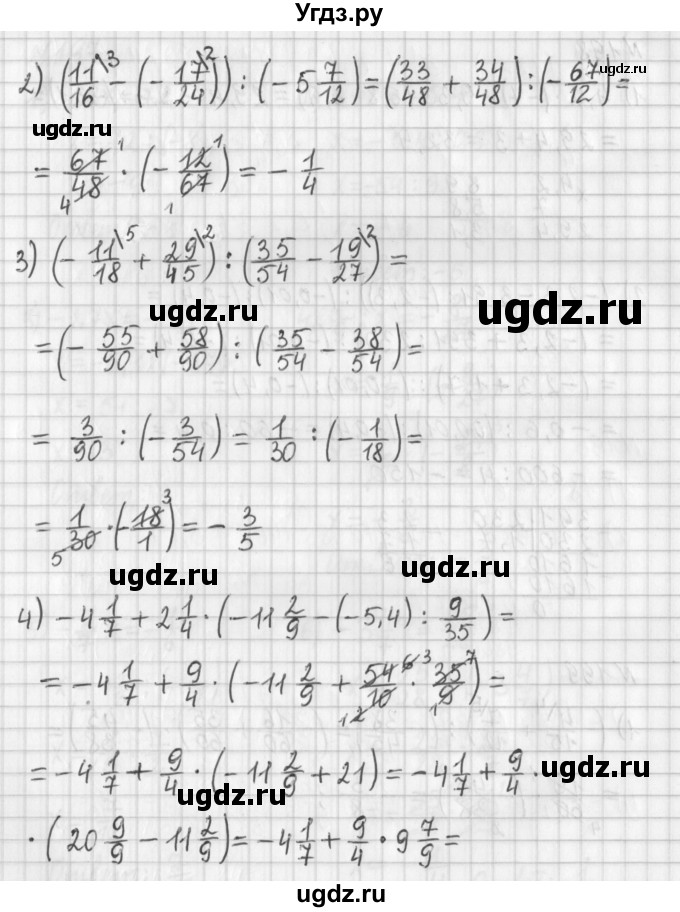 Угдз.ру
ugdz.ru
2) (11/16\3 - (-17/24\2)) : (-5 7/12) = (33/48 + 34/48) : (-67/12) =
ugdz.ru
= 67/48 4 1 · (-12/67 1 1) = -1/4
3) (-11/18\5 + 29/45\2) : (35/54 - 19/27\2) =
ugdz.ru
ugdz.ru
= (-55/90 + 58/90) : (35/54 - 38/54) =
= 3/90 : (-3/54) = 1/30 : (-1/18) =
= 1/30 5 · (-18/1 3) = -3/5
ugdz.ru
ugdz.ru
4) -4 1/7 + 2 1/4 · (-11 2/9 - (-5,4) : 9/35) =
ugdz.ru
= -4 1/7 + 9/4 · (-11 2/9 + 54/10 6 3 1 2 · 35/9 7 1) =
= -4 1/7 + 9/4 · (-11 2/9 + 21) = -4 1/7 + 9/4 ·
ugdz.ru
ugdz.ru
· (20 9/9 - 11 2/9) = -4 1/7 + 9/4 · 9 7/9 =
ugdz.ru